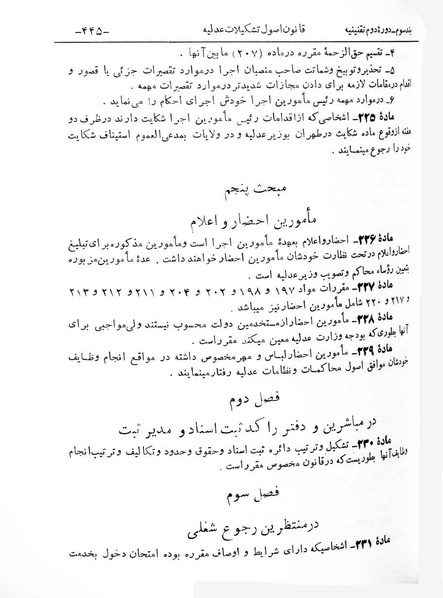 بند سوم - دورهٔ دوم تقنینیه قانون اصول تشکیلات عدلیه -۴۴۵-
۴- تقسیم حق‌الزحمهٔ مقرره درماده (۲۰۷) مابین آنها .
۵- تحذیر و توبیخ و شماتت صاحب منصبان اجرا درموارد تقصیرات جزئی یا قصور و
اقدام درمقامات لازمه برای دادن مجازات شدیدتر درموارد تقصیرات مهمه .
۶- درموارد مهمه رئیس مأمورین اجرا خودش اجرای احکام را می‌نماید .
مادهٔ ۲۲۵- اشخاصی که از اقدامات رئیس مأمورین اجرا شکایت دارند درظرف دو
هفته از وقوع ماده شکایت درطهران بوزیر عدلیه و در ولایات بمدعی‌العموم استیناف شکایت
خود را رجوع مینمایند .
مبحث پنجم
مأمورین احضار و اعلام
مادهٔ ۲۲۶- احضار و اعلام بعهدهٔ مأمورین اجرا است و مأمورین مذکوره برای تبلیغ
احضار و اعلام در تحت نظارت خودشان مأمورین احضار خواهند داشت . عدهٔ مأمورین مزبوره
بتعیین رؤساء محاکم و تصویب وزیر عدلیه است .
مادهٔ ۲۲۷- مقررات مواد ۱۹۷ و ۱۹۸ و ۲۰۲ و ۲۰۴ و ۲۱۱ و ۲۱۲ و ۲۱۳
و ۲۱۷ و ۲۲۰ شامل مأمورین احضار نیز میباشد .
مادهٔ ۲۲۸- مأمورین احضار از مستخدمین دولت محسوب نیستند ولی مواجبی برای
آنها بطوری که بودجه وزارت عدلیه معین میکند مقرر است .
مادهٔ ۲۲۹- مأمورین احضار لباس و مهر مخصوص داشته در مواقع انجام وظایف
خودشان موافق اصول محاکمات و نظامات عدلیه رفتار مینمایند .
فصل دوم
در مباشرین و دفتر راکد ثبت اسناد و مدیر ثبت
مادهٔ ۲۳۰- تشکیل و ترتیب دائره ثبت اسناد و حقوق و حدود و تکالیف و ترتیب انجام
وظایف آنها بطوریست که درقانون مخصوص مقرر است .
فصل سوم
در منتظرین رجوع شغلی
مادهٔ ۲۳۱- اشخاصیکه دارای شرایط و اوصاف مقرره بوده امتحان دخول بخدمت